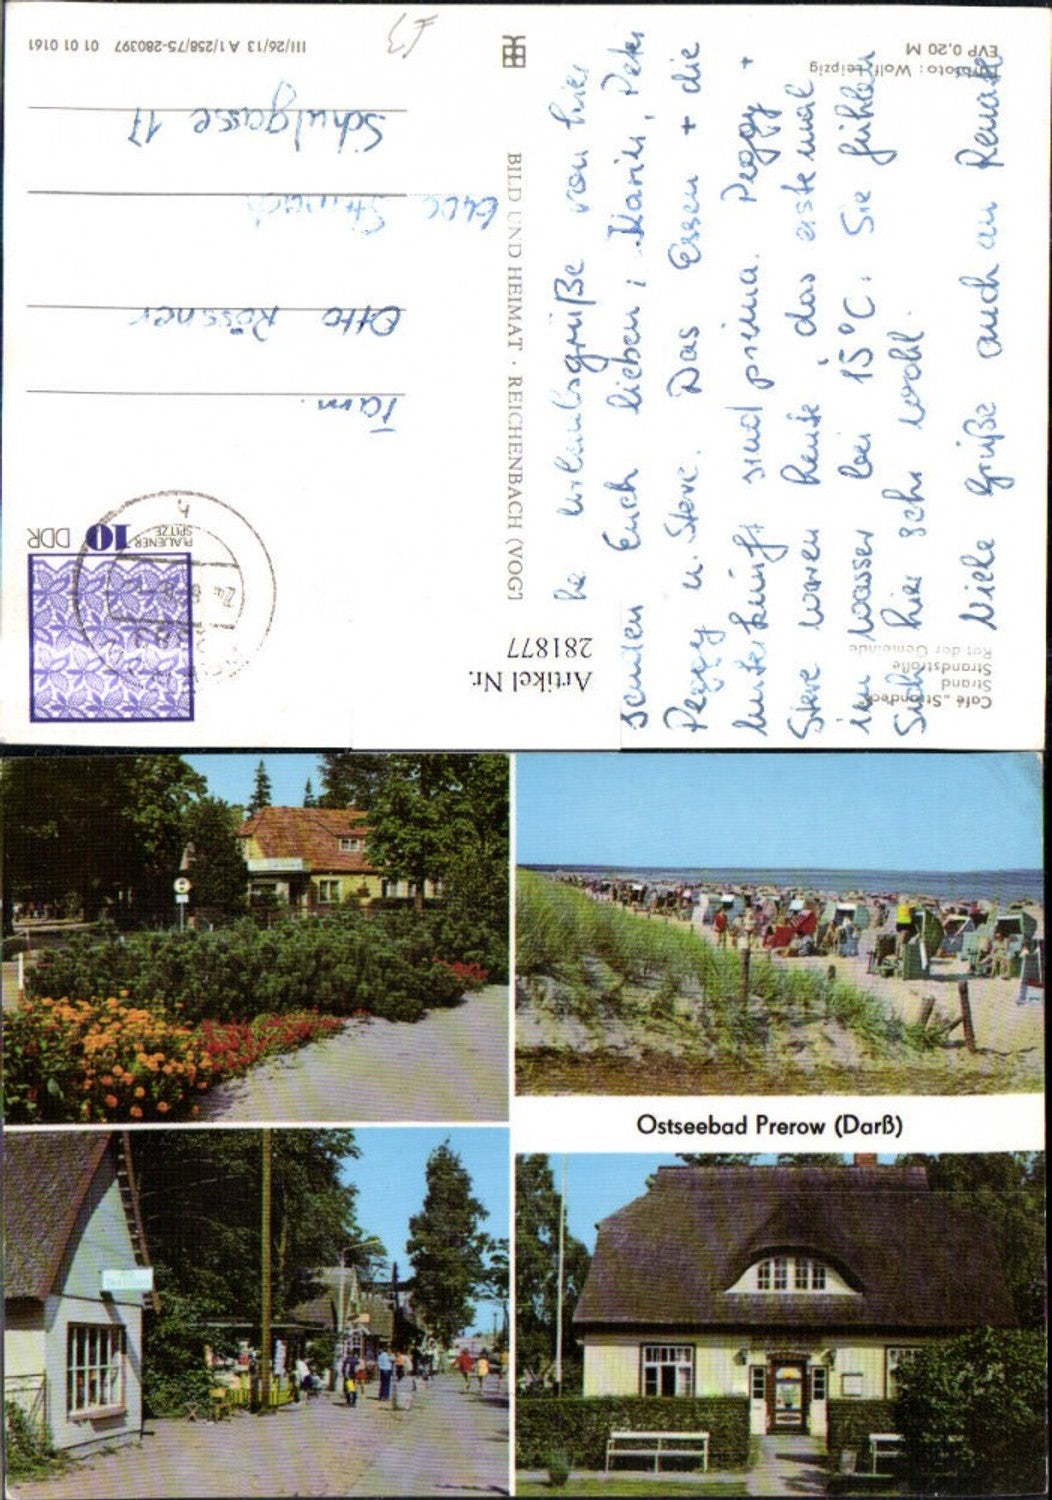 III/26/13 A 1/258/75-280397 01 01 0161
Schulgasse 17
Otto Rössner
Fam.
DDR 10 PLAUENER
SPITZE
BILD UND HEIMAT · REICHENBACH (VOGT
Artikel Nr.
281877
Café „Strandeck
Strand
Strandstraße
Rat der Gemeinde
EVP 0,20 M
foto: Wolf, Leipzig
Urlaubsgrüße von hier
senden Euch lieben; Karin, Peter
Peggy u. Steve. Das Essen + die
Unterkünft sind prima. Peggy +
Steve waren heute das erste mal
im Wasser bei 15°C. Sie fühlen
sich hier sehr wohl.
Viele Grüße auch an Renate
Ostseebad Prerow (Darß)